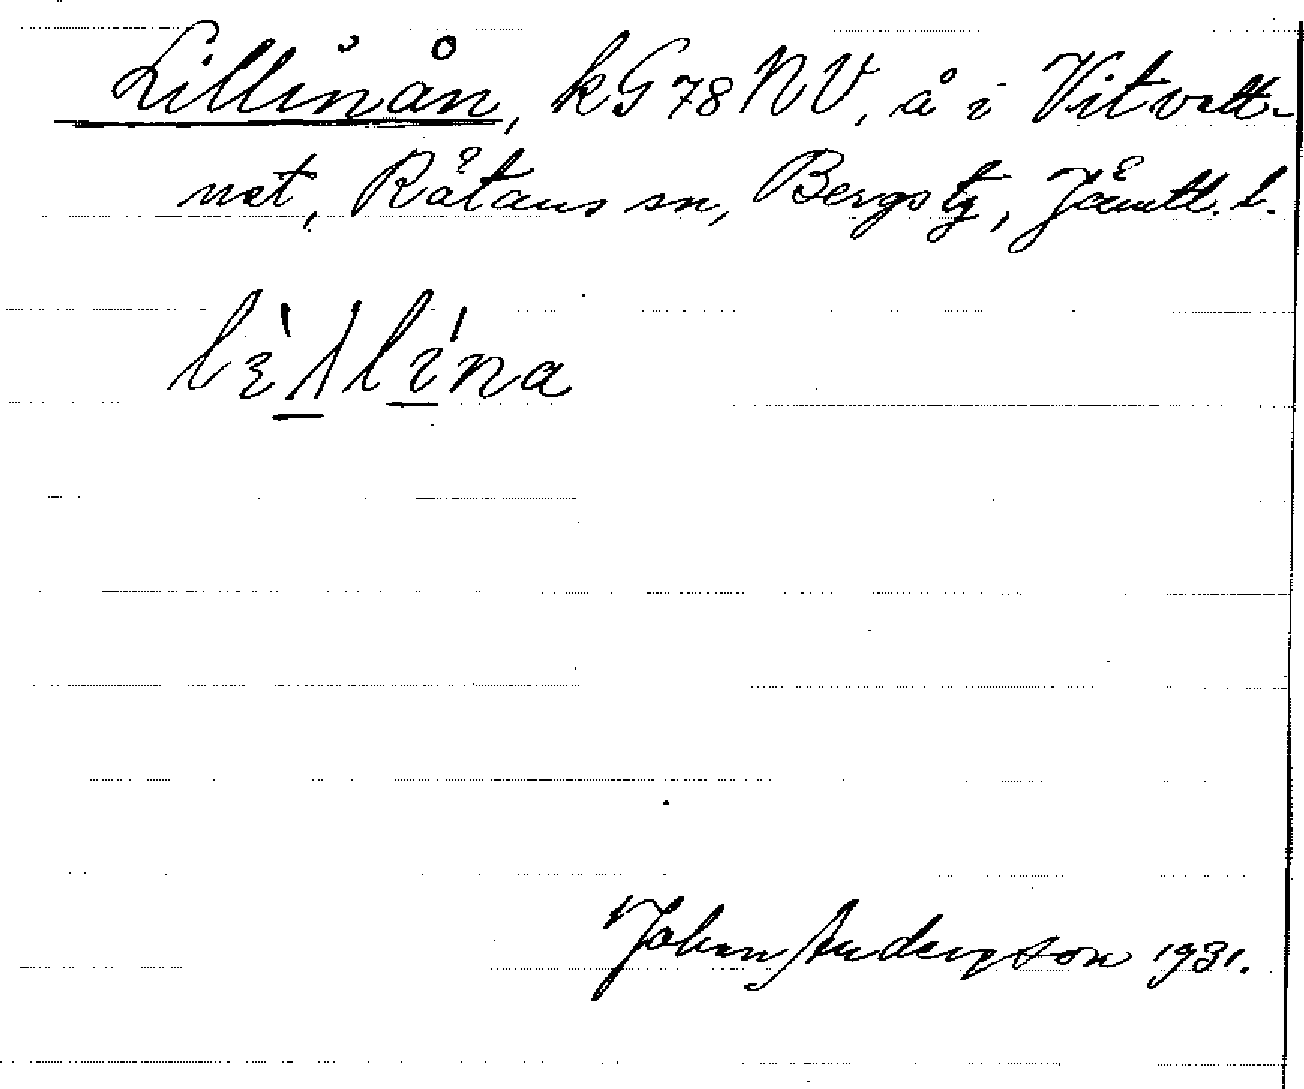 Lillinån, kG78NV, å i Vitvatt-
net, Råtans sn, Bergs tg, Jämtl. l.
Johan Andersson 1931.